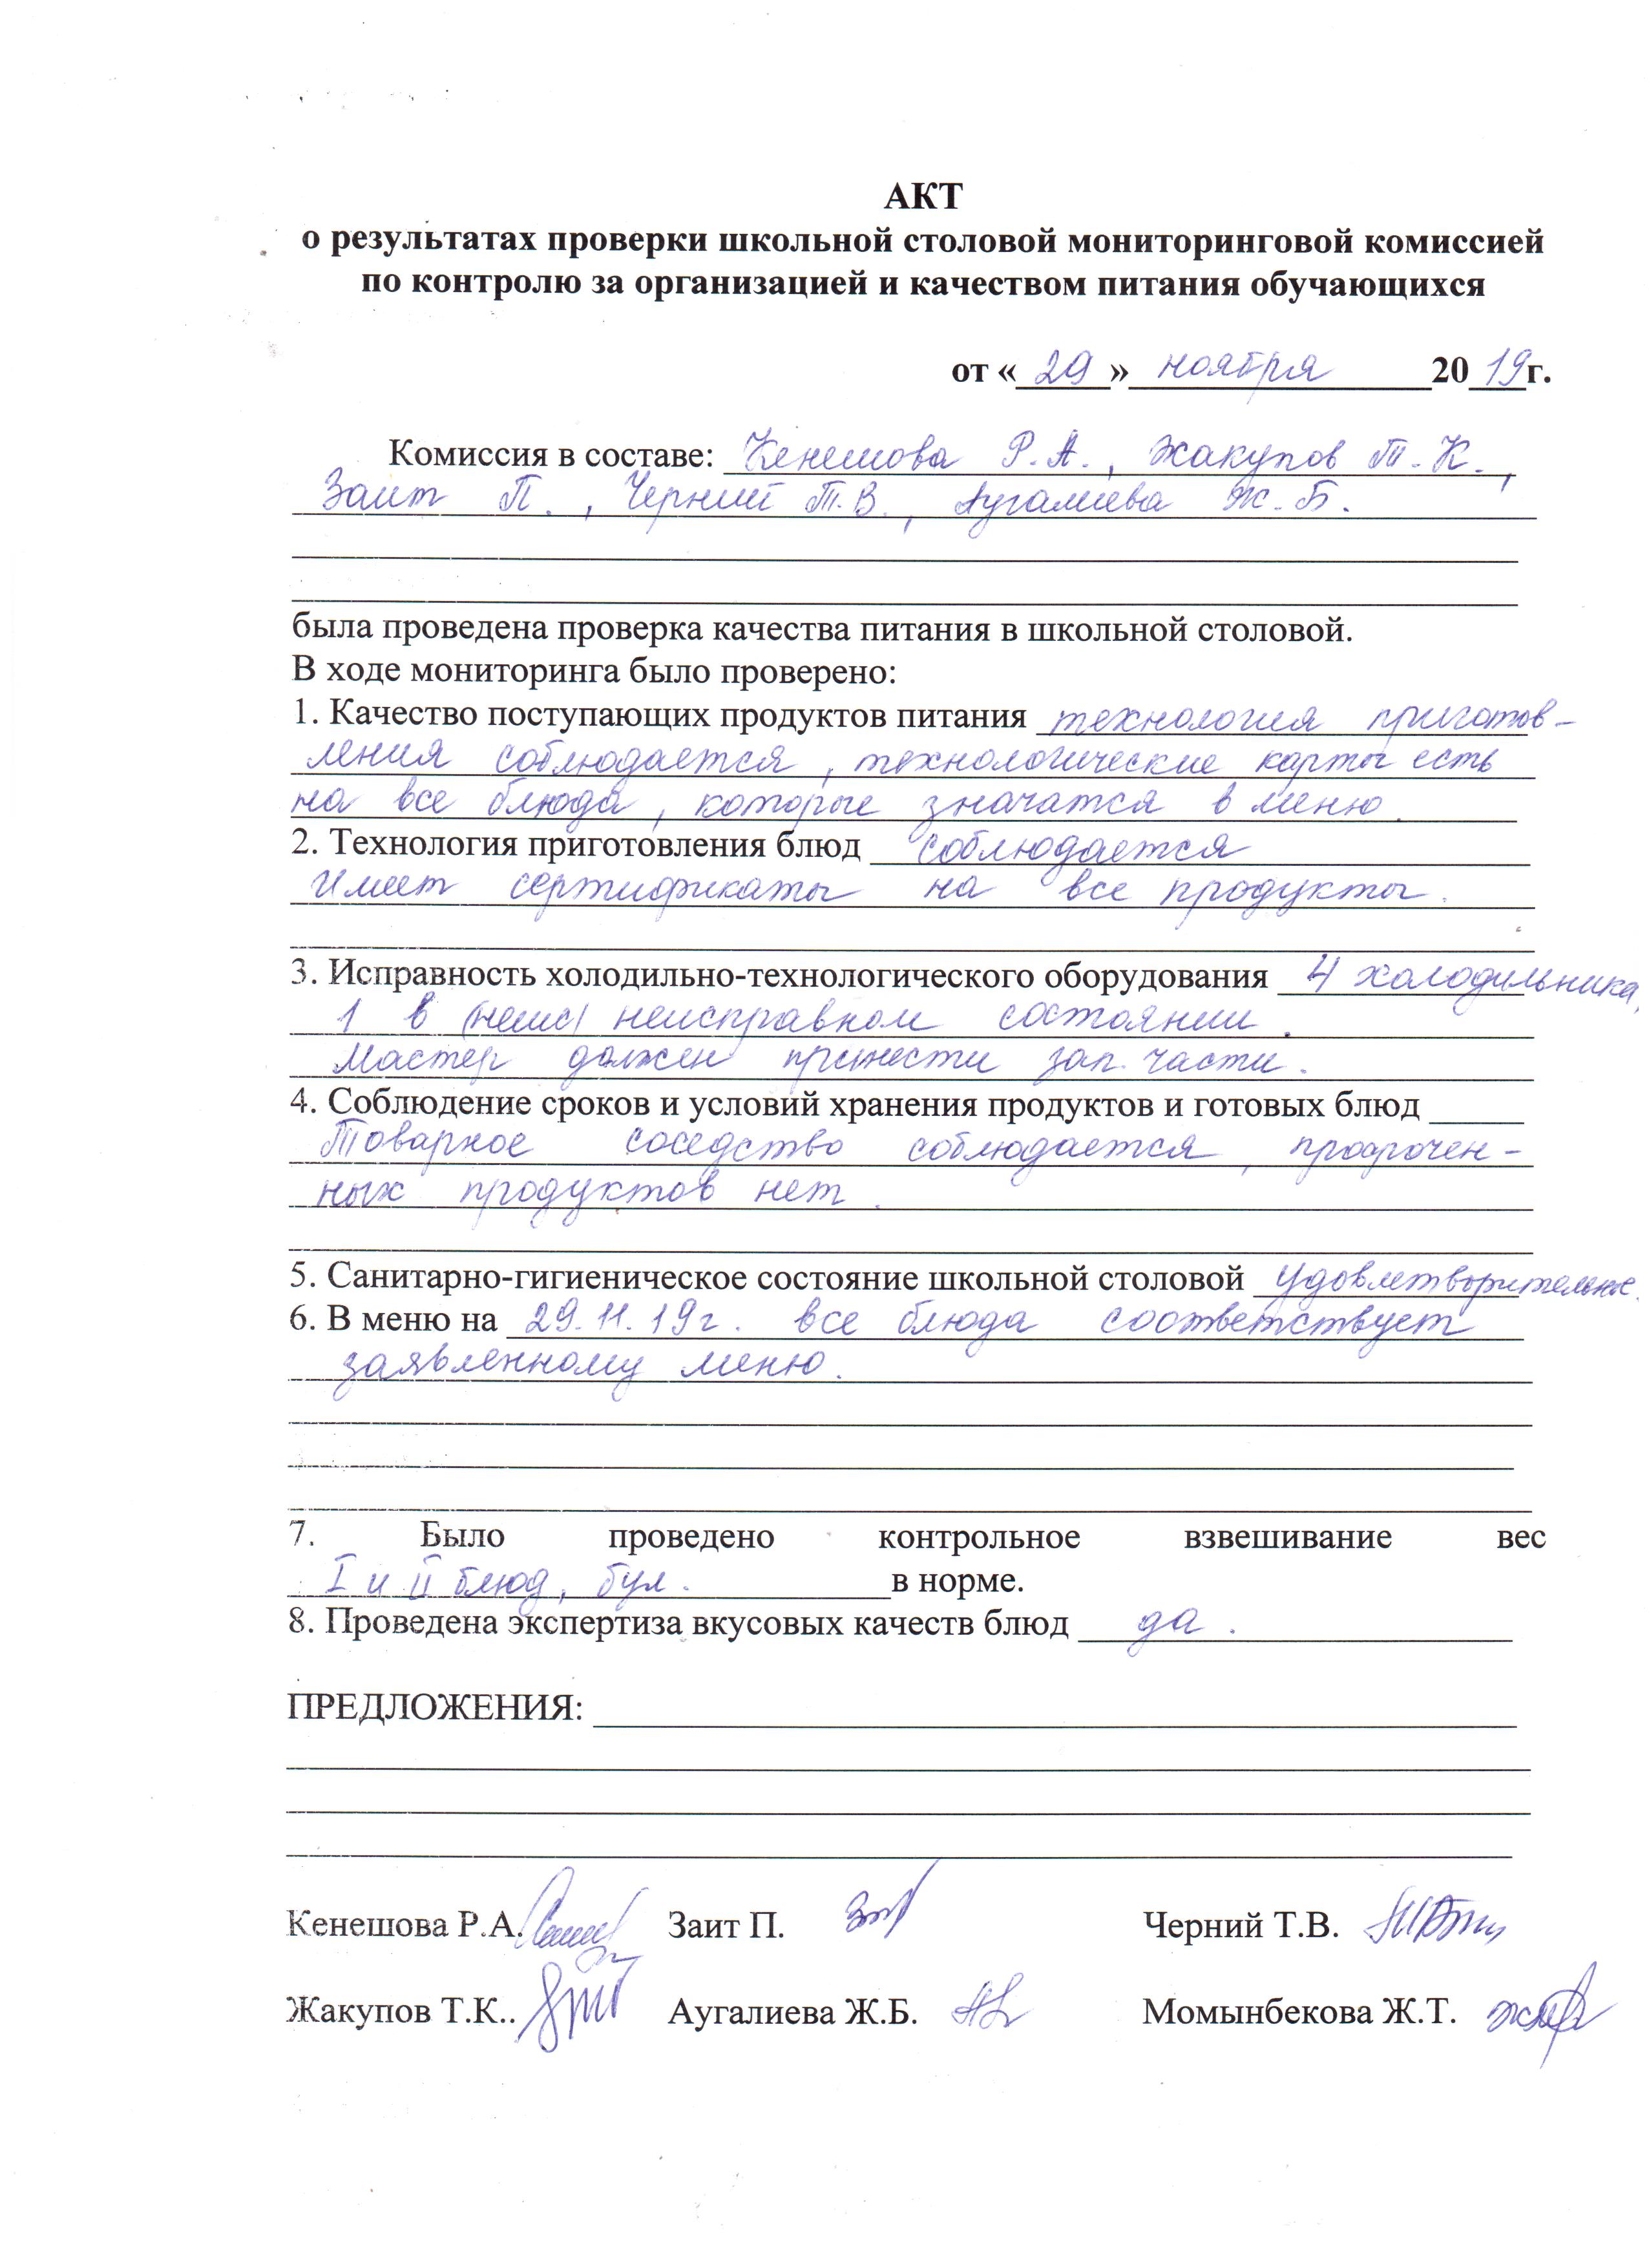 АКТ
о результатах проверки школьной столовой мониторинговой комиссией
по контролю за организацией и качеством питания обучающихся
от « 29 » ноября 2019г.
Комиссия в составе: Кенешова Р.А., Жакупов Т.К.,
Заит П., Черний Т.В., Аугалиева Ж.Б.
была проведена проверка качества питания в школьной столовой.
В ходе мониторинга было проверено:
1. Качество поступающих продуктов питания технология приготов-
ления соблюдается, технологические карты есть
на все блюда, которые значатся в меню.
2. Технология приготовления блюд соблюдается
Имеет сертификаты на все продукты.
3. Исправность холодильно-технологического оборудования 4 холодильника,
1 в (неис) неисправном состоянии.
Мастер должен принести зап. части.
4. Соблюдение сроков и условий хранения продуктов и готовых блюд
Товарное соседство соблюдается, просрочен-
ных продуктов нет.
5. Санитарно-гигиеническое состояние школьной столовой удовлетворительное.
6. В меню на 29.11.19г. все блюда соответствует
заявленному меню.
7. Было проведено контрольное взвешивание вес
I и II блюд, бул. в норме.
8. Проведена экспертиза вкусовых качеств блюд да.
ПРЕДЛОЖЕНИЯ:
Кенешова Р.А. Заит П. Черний Т.В.
Жакупов Т.К.. Аугалиева Ж.Б. Момынбекова Ж.Т.